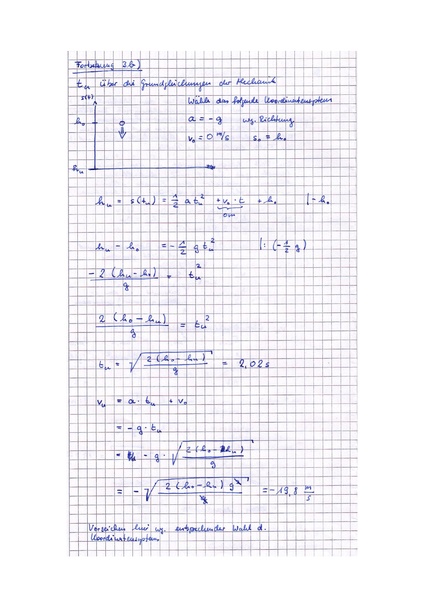 Fortsetzung 3.b)
t_u über die Grundgleichungen der Mechanik
s(t)
Wähle das folgende Koordinatensystem
h_o
a = -g wg. Richtung
v_o = 0 m/s s_o = h_o
h_u
h_u = s(t_u) = 1/2 a t_u² + v_o · t + h_o | - h_o
0m
h_u - h_o = - 1/2 g t_u² | : (- 1/2 g)
- 2 (h_u - h_o) / g = t_u²
2 (h_o - h_u) / g = t_u²
t_u = √(2 (h_o - h_u) / g) = 2,02 s
v_u = a · t_u + v_o
= - g · t_u
= - g · √(2 (h_o - h_u) / g)
= - √(2 (h_o - h_u) g² / g) = -19,8 m/s
Vorzeichen wg. entsprechender Wahl d.
Koordinatensystems